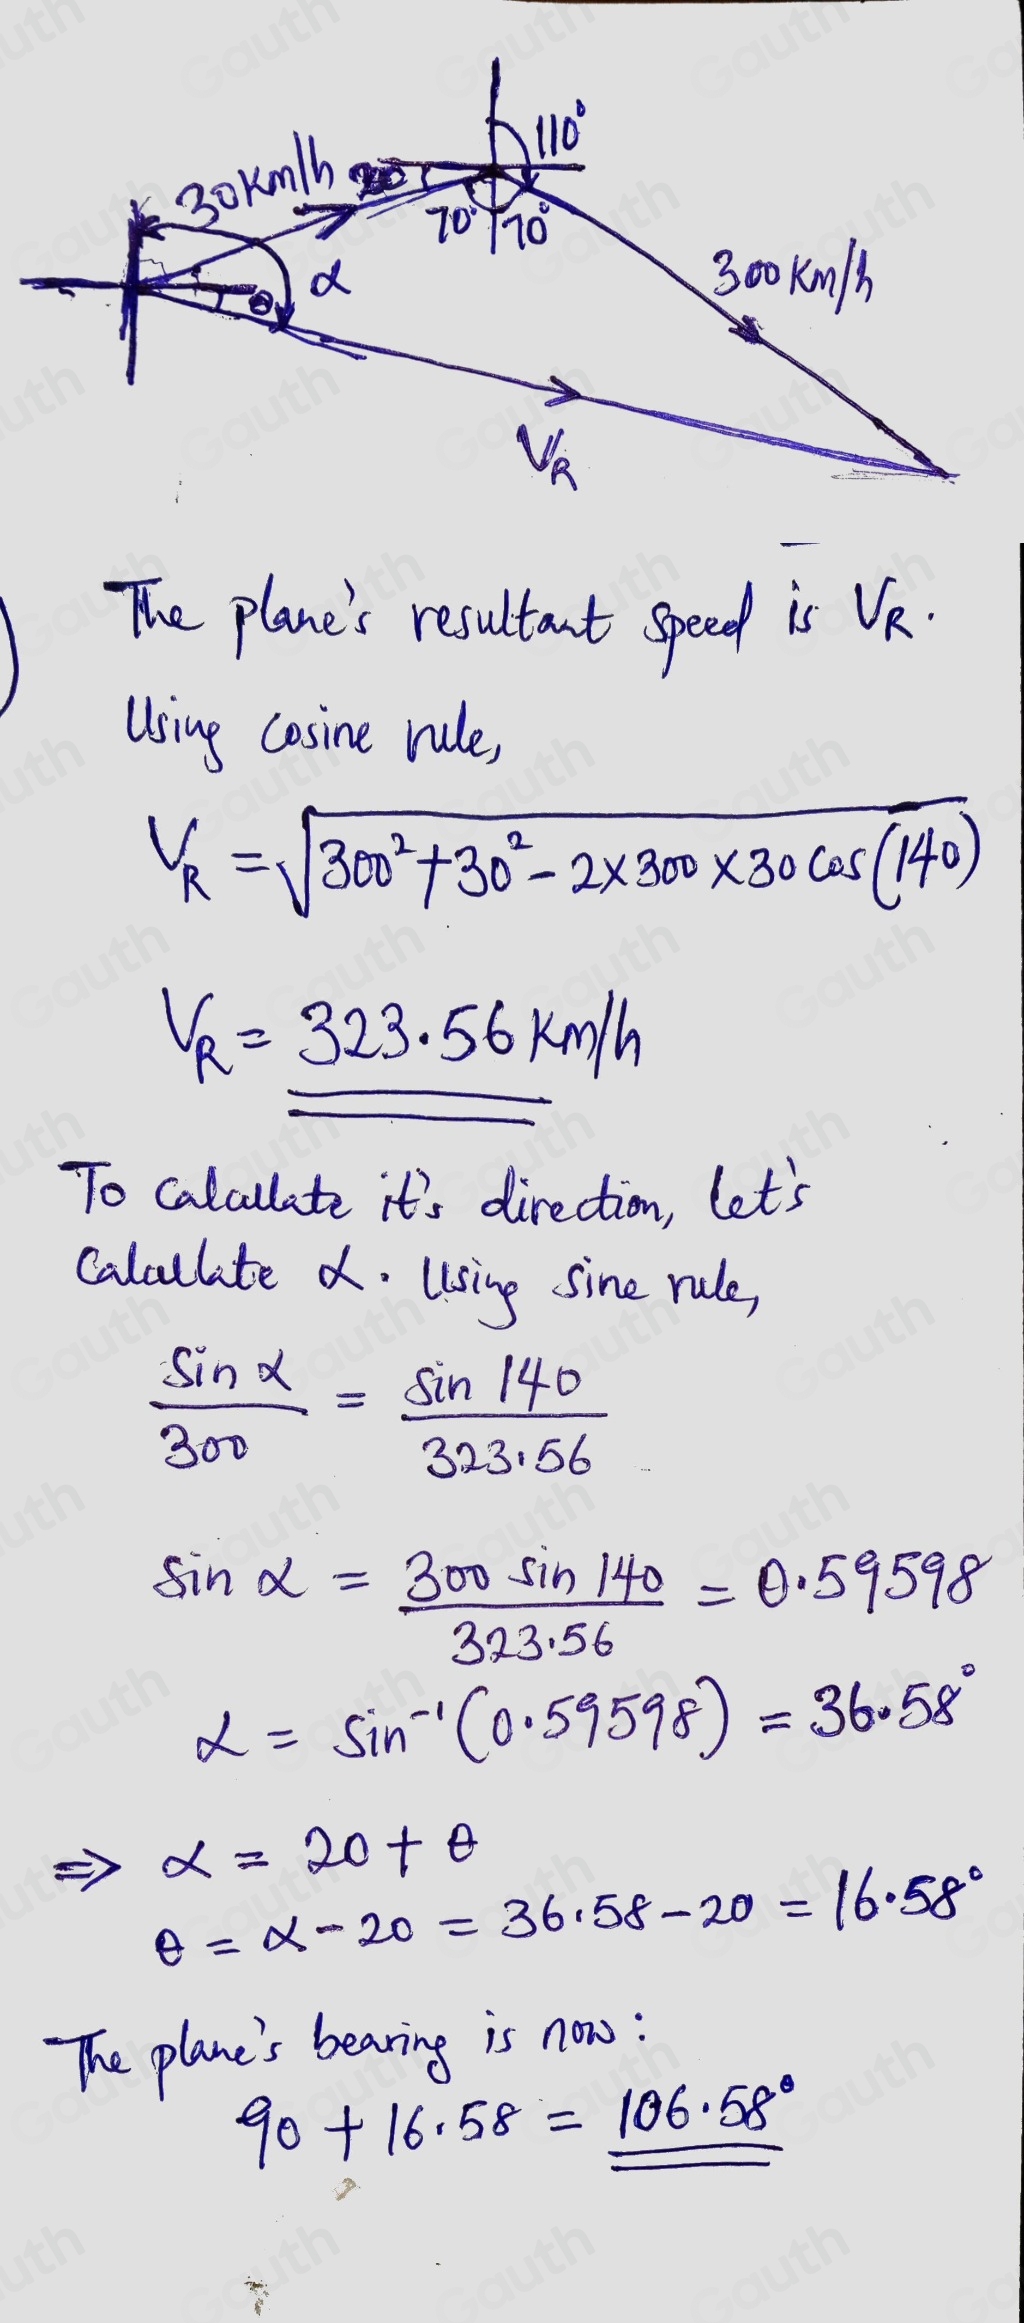 110°
30 Km/h
20
70°
70°
300 Km/h
α
θ
VR
The plane's resultant speed is VR.
Using cosine rule,
VR = √300² + 30² - 2×300×30 cos(140)
VR = 323.56 Km/h
To calculate it's direction, let's
Calculate α. Using sine rule,
sin α / 300 = sin 140 / 323.56
sin α = 300 sin 140 / 323.56 = 0.59598
α = sin⁻¹(0.59598) = 36.58°
⇒ α = 20 + θ
θ = α - 20 = 36.58 - 20 = 16.58°
The plane's bearing is now:
90 + 16.58 = 106.58°